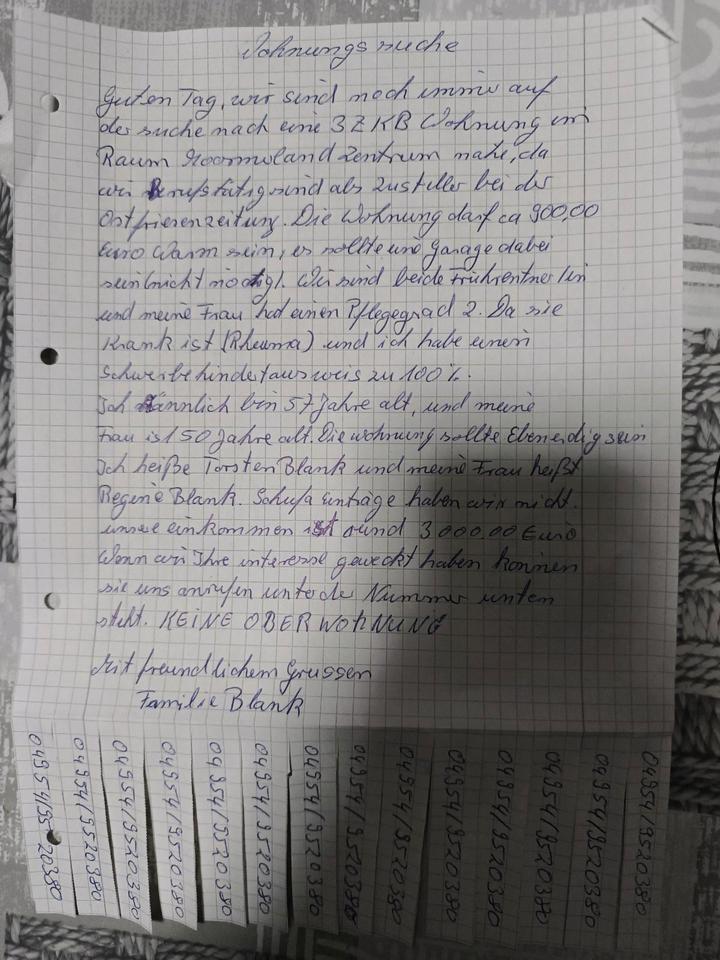 Wohnungssuche
Guten Tag, wir sind noch immer auf
der suche nach eine 3ZKB Wohnung im
Raum Moormerland Zentrum nahe, da
wir Berufstätig sind als Zusteller bei der
Ostfriesenzeitung. Die Wohnung darf ca 900,00
Euro Warm sein, es sollte eine garage dabei
sein(nicht nötig). Wir sind beide Frührentner/in
und meine Frau hat einen Pflegegrad 2. Da sie
Krank ist (Rheuma) und ich habe einen
Schwerbehindertausweis zu 100%.
Ich männlich bin 57 Jahre alt, und meine
Frau ist 50 Jahre alt. Die wohnung sollte Ebenerdig sein
Ich heiße Torsten Blank und meine Frau heißt
Regine Blank. Schufa einträge haben wir nicht.
unsere einkommen ist rund 3000,00 Euro
Wenn wir Ihre interesse geweckt haben können
sie uns anrufen unter der Nummer unten
steht. KEINE OBERWOHNUNG
Mit freundlichem Grussen
Familie Blank
04954/9520380
04954/9520380
04954/9520380
04954/9520380
04954/9520380
04954/9520380
04954/9520380
04954/9520380
04954/9520380
04954/9520380
04954/9520380
04954/9520380
04954/9520380
04954/9520380